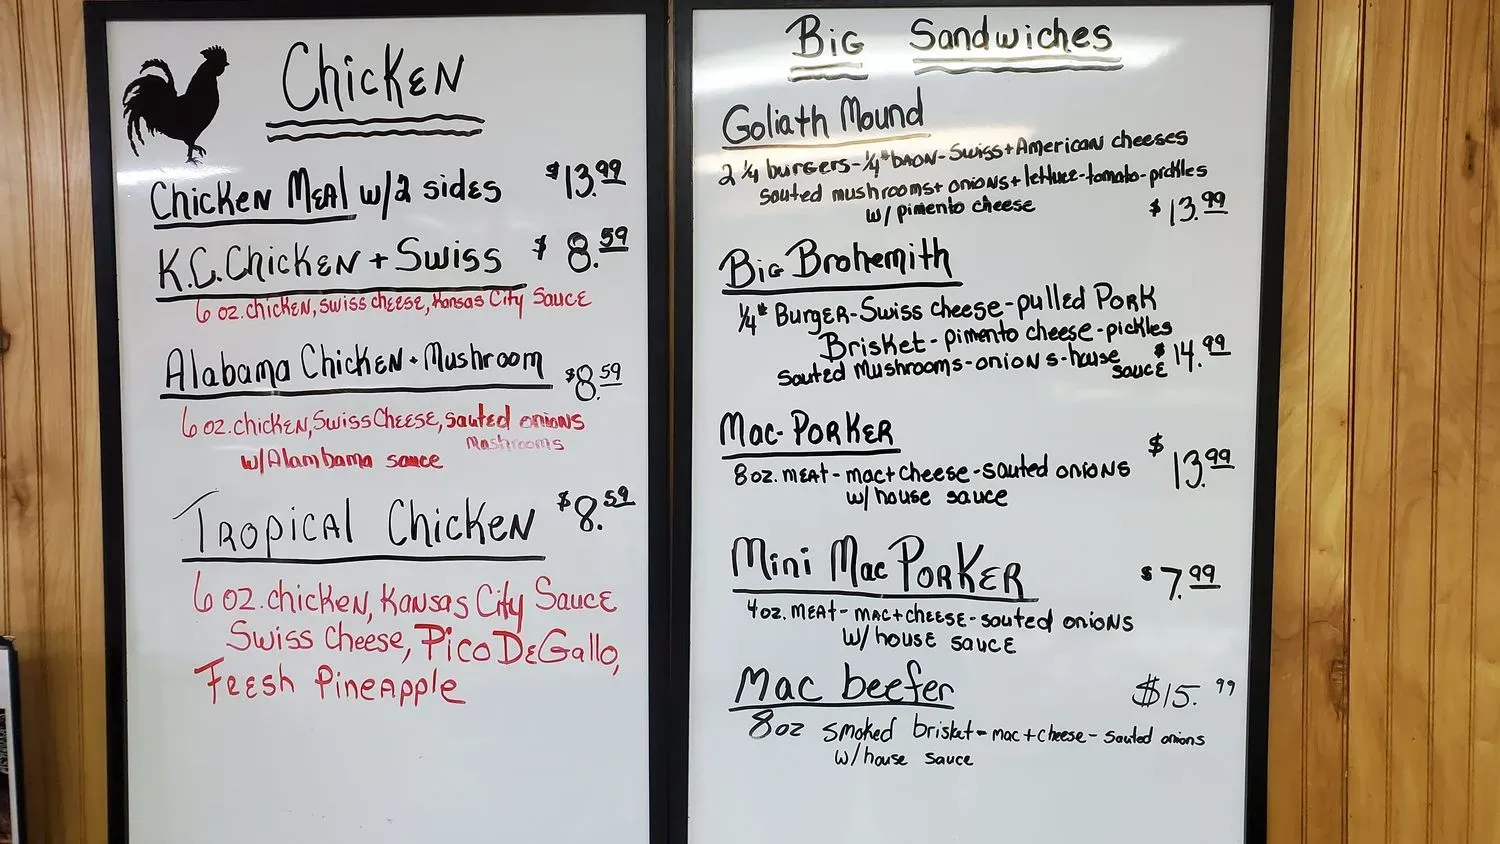 Chicken
Chicken Meal w/2 sides $13.99
K.C. Chicken + Swiss $8.59
6 oz. chicken, swiss cheese, Kansas City Sauce
Alabama Chicken + Mushroom $8.59
6 oz. chicken, Swiss Cheese, sauted onions
mushrooms
w/Alambama sauce
Tropical Chicken $8.59
6 oz. chicken, Kansas City Sauce
Swiss Cheese, Pico DeGallo,
Fresh Pineapple
Big Sandwiches
Goliath Mound
2 ¼ burgers-¼# bacon-Swiss+American cheeses
sauted mushrooms+ onions+lettuce-tomato-pickles
w/ pimento cheese $13.99
Big Brohemith
¼# Burger-Swiss cheese-pulled Pork
Brisket-pimento cheese-pickles
sauted mushrooms-onions-house
sauce $14.99
Mac-Porker
8 oz. meat-mac+cheese-sauted onions $13.99
w/house sauce
Mini Mac Porker $7.99
4oz. meat-mac+cheese-sauted onions
w/house sauce
Mac beefer $15.99
8oz smoked brisket-mac+cheese-sauted onions
w/house sauce